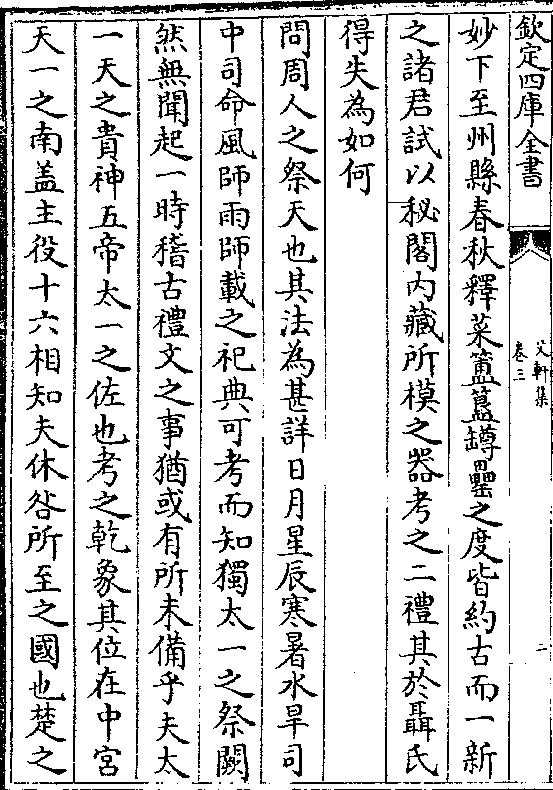 欽定四庫全書
艾軒集
卷三
二
妙下至州縣春秋釋菜簠簋罇罍之度皆約古而一新
之諸君試以秘閣内藏所模之器考之二禮其於聶氏
得失為如何
問周人之祭天也其法為甚詳日月星辰寒暑水旱司
中司命風師雨師載之祀典可考而知獨太一之祭闕
然無聞起一時稽古禮文之事猶或有所未備乎夫太
一天之貴神五帝太一之佐也考之乾象其位在中宮
天一之南盖主役十六相知夫休咎所至之國也楚之